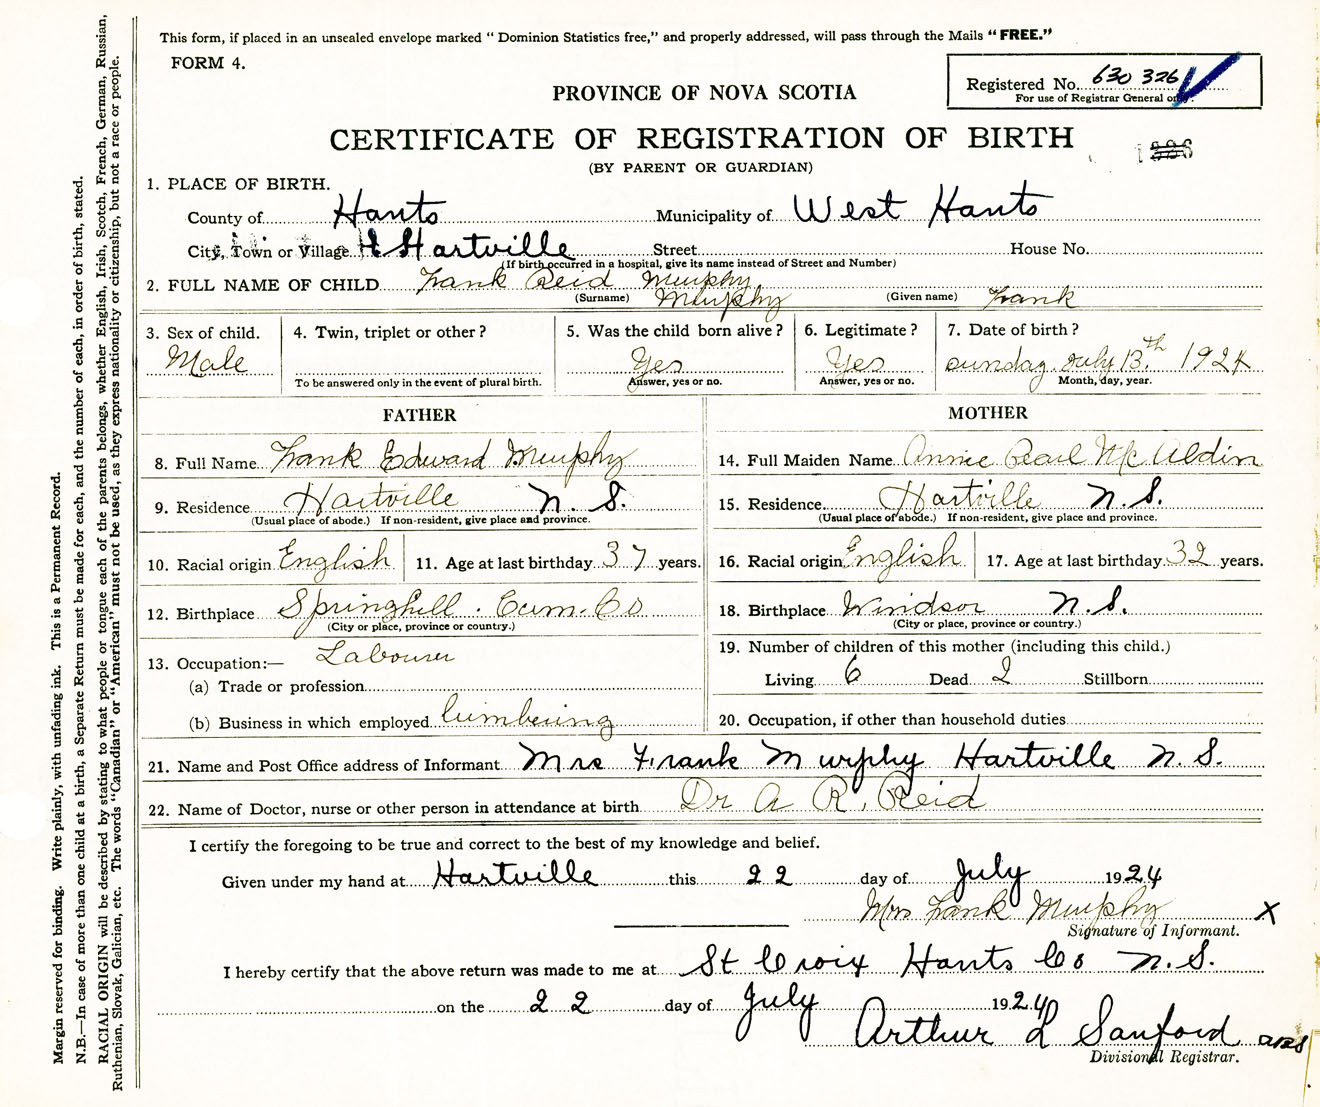 This form, if placed in an unsealed envelope marked “ Dominion Statistics free,” and properly addressed, will pass through the Mails “ FREE.”
FORM 4.
Registered No. 630 326
For use of Registrar General only.
PROVINCE OF NOVA SCOTIA
CERTIFICATE OF REGISTRATION OF BIRTH
(BY PARENT OR GUARDIAN)
1. PLACE OF BIRTH.
County of Hants Municipality of West Hants
City, Town or Village Hartville Street House No.
(If birth occurred in a hospital, give its name instead of Street and Number)
2. FULL NAME OF CHILD Frank Reid Murphy
(Surname) Murphy (Given name) Frank
3. Sex of child. 4. Twin, triplet or other ? 5. Was the child born alive ? 6. Legitimate ? 7. Date of birth ?
Male Yes Yes Sunday July 13th 1924
To be answered only in the event of plural birth. Answer, yes or no. Answer, yes or no. Month, day, year.
FATHER MOTHER
8. Full Name Frank Edward Murphy 14. Full Maiden Name Annie Pearl
9. Residence Hartville N. S. 15. Residence Hartville N. S.
(Usual place of abode.) If non-resident, give place and province. (Usual place of abode.) If non-resident, give place and province.
10. Racial origin English 11. Age at last birthday 37 years. 16. Racial origin English 17. Age at last birthday 32 years.
12. Birthplace Springhill . Cum. Co 18. Birthplace Windsor N. S.
(City or place, province or country.) (City or place, province or country.)
13. Occupation:— Labourer 19. Number of children of this mother (including this child.)
(a) Trade or profession Living 6 Dead 2 Stillborn
(b) Business in which employed lumbering 20. Occupation, if other than household duties
21. Name and Post Office address of Informant Mrs Frank Murphy Hartville N. S.
22. Name of Doctor, nurse or other person in attendance at birth Dr A R. Reid
I certify the foregoing to be true and correct to the best of my knowledge and belief.
Given under my hand at Hartville this 22 day of July 1924
Mrs Frank Murphy X
Signature of Informant.
I hereby certify that the above return was made to me at St Croix Hants Co N. S.
on the 22 day of July 1924
Arthur L Sanford
Divisional Registrar.
Margin reserved for binding. Write plainly, with unfading ink. This is a Permanent Record.
N.B.—In case of more than one child at a birth, a Separate Return must be made for each, and the number of each, in order of birth, stated.
RACIAL ORIGIN will be described by stating to what people or tongue each of the parents belongs, whether English, Irish, Scotch, French, German, Russian,
Ruthenian, Slovak, Galician, etc. The words “Canadian” or “American” must not be used, as they express nationality or citizenship, but not a race or people.